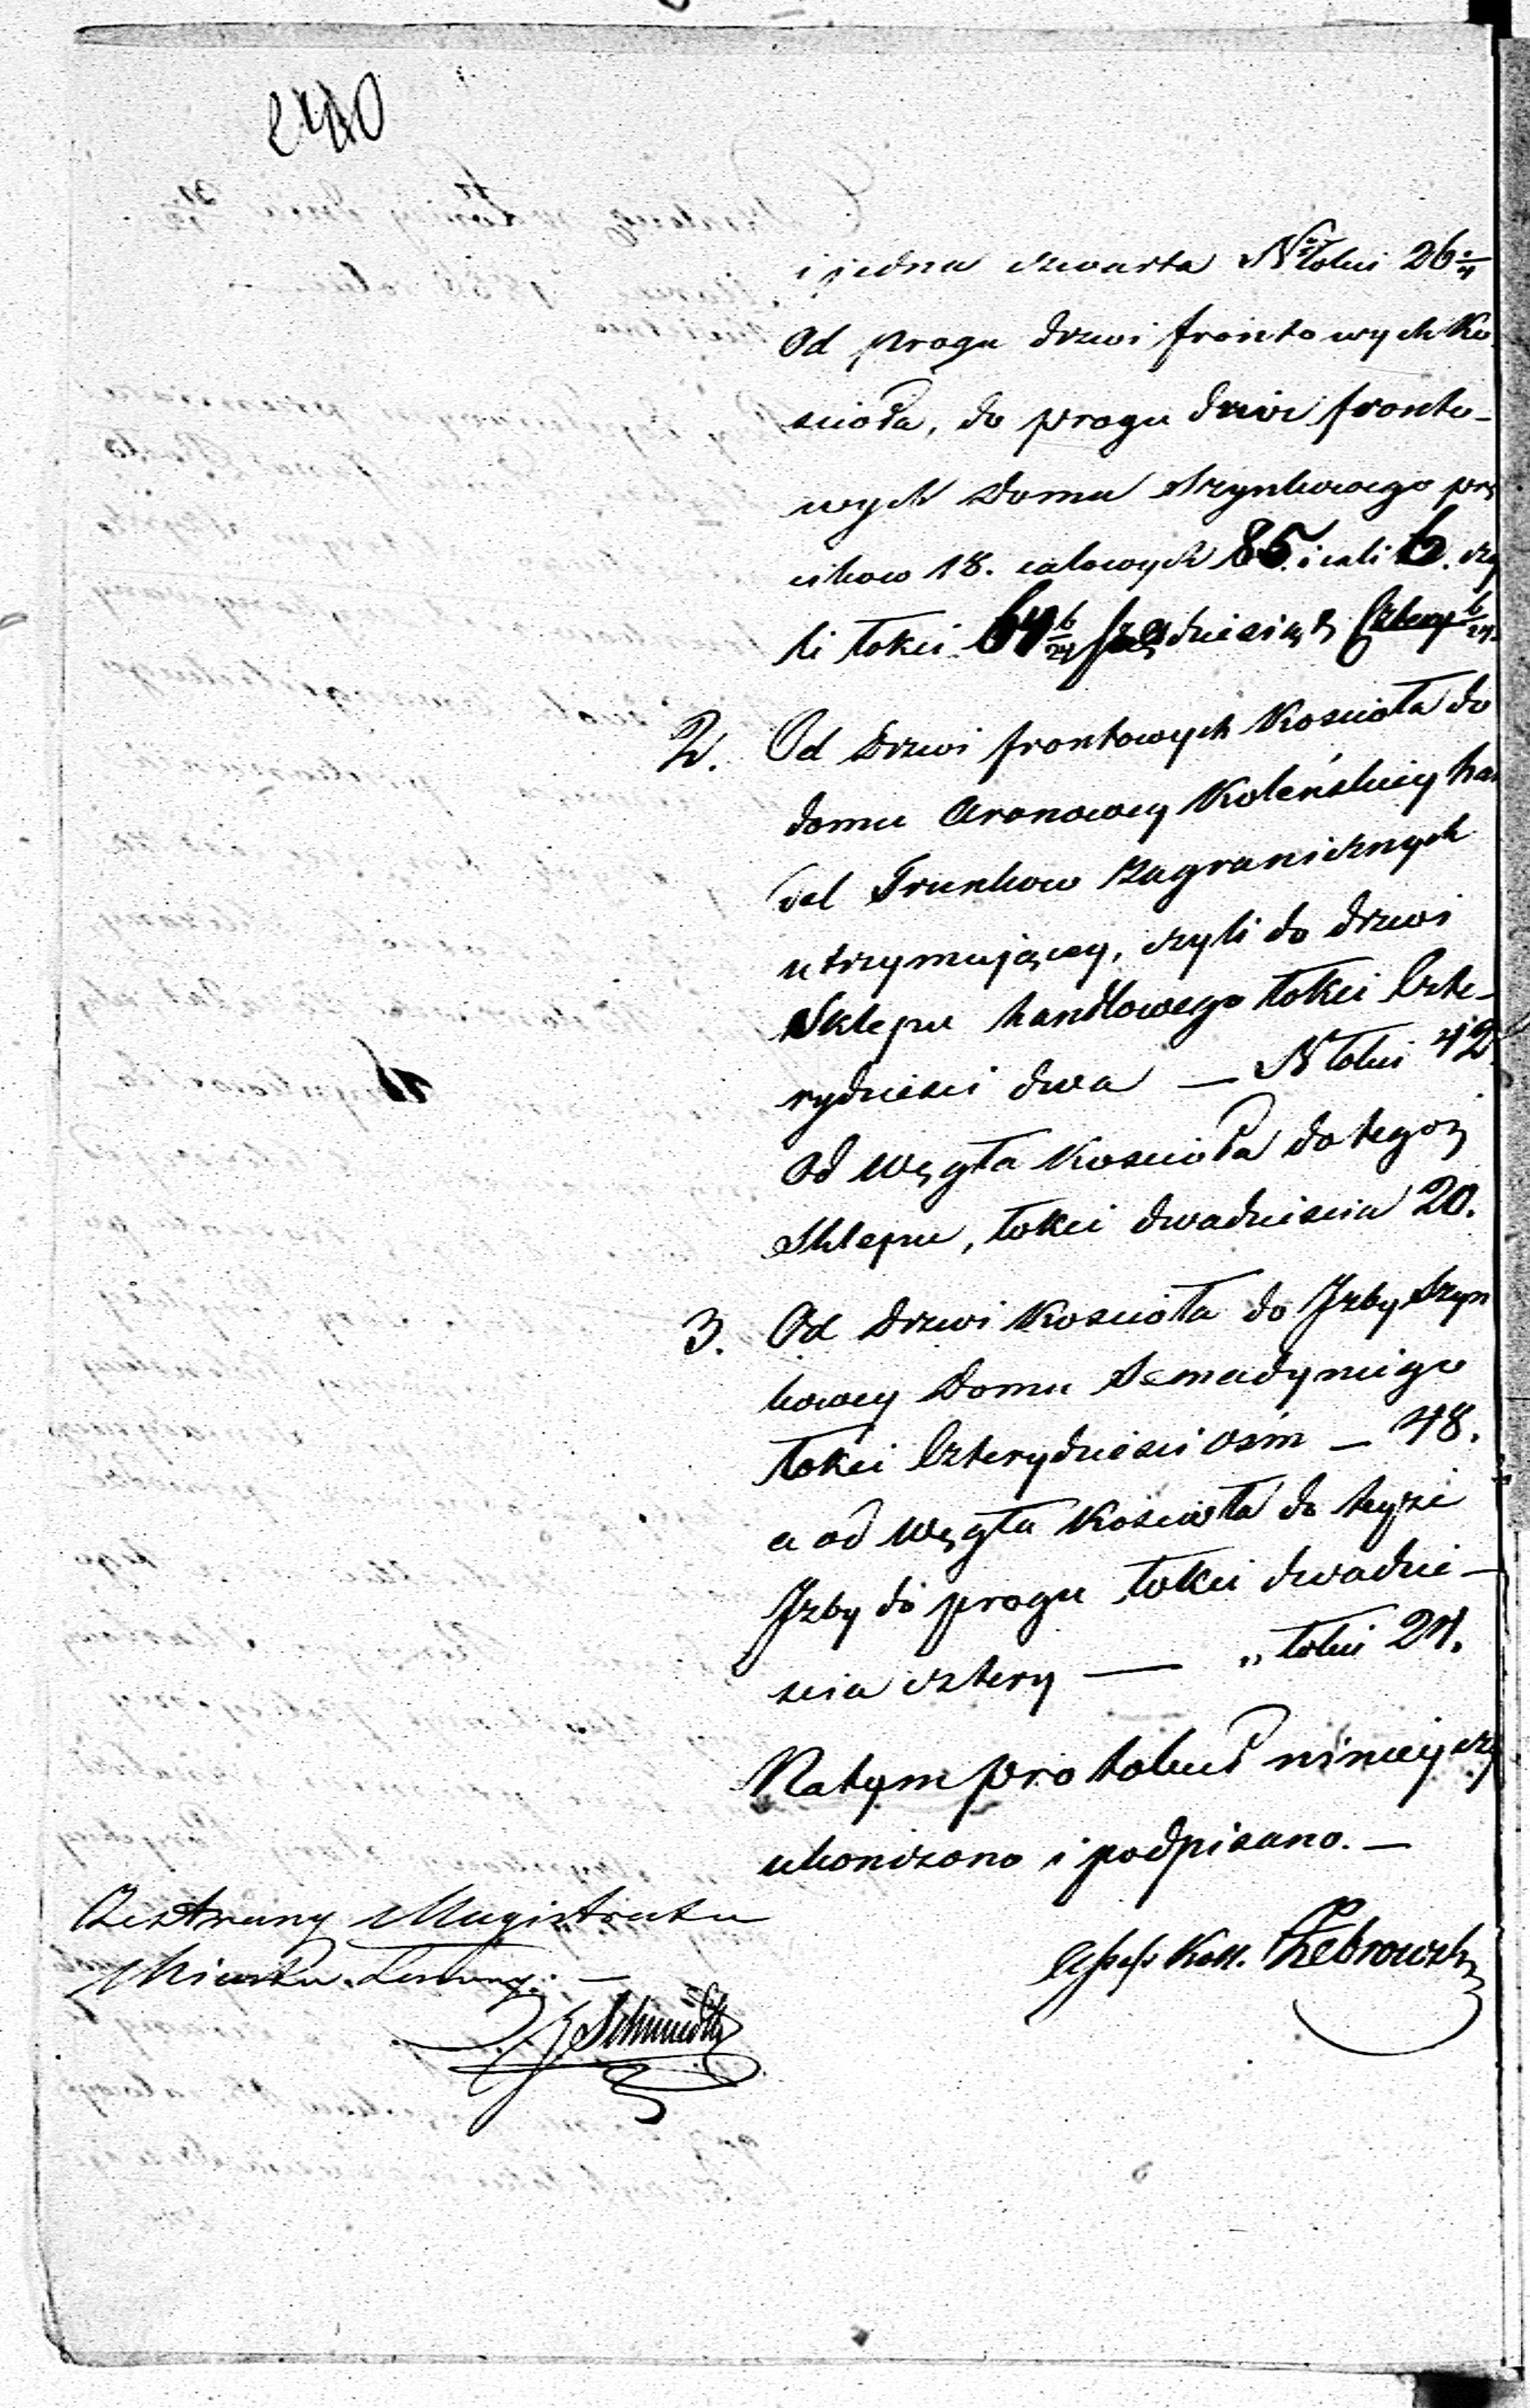 i jedna czwarta N łokci 26 1/4
Od progu drzwi frontowych Ko
scioła, do progu drzwi fronto-
wych domu szynkowego prę
cikow 18. calowych 85. i cali 6. czy
li łokci 64 6/24 sześdziesiąt cztery 6/24.
2. Od drzwi frontowych Kościoła do
domu Aronowey Koleńskiey han
del Trunkow zagranicznych
utrzymującey, czyli do drzwi
Sklepu handlowego łokci czte-
rydzieści dwa — N łokci 42.
Od Węgła Kościoła do tegoż
sklepu, łokci dwadzieścia 20.
3. Od drzwi Kościoła do Jzby szyn
kowey domu Semadyniego
łokci czterydzieści ośm — 48.
a od Węgła Kościoła do teyże
Jzby do progu łokci dwadzie-
ścia cztery — „ łokci 24.
Natym protokuł ninieyszy
ukończono i podpisano. —
Ze strony Magistratu
Miasta
Schmidt
Assess. Koll. Żebrowski